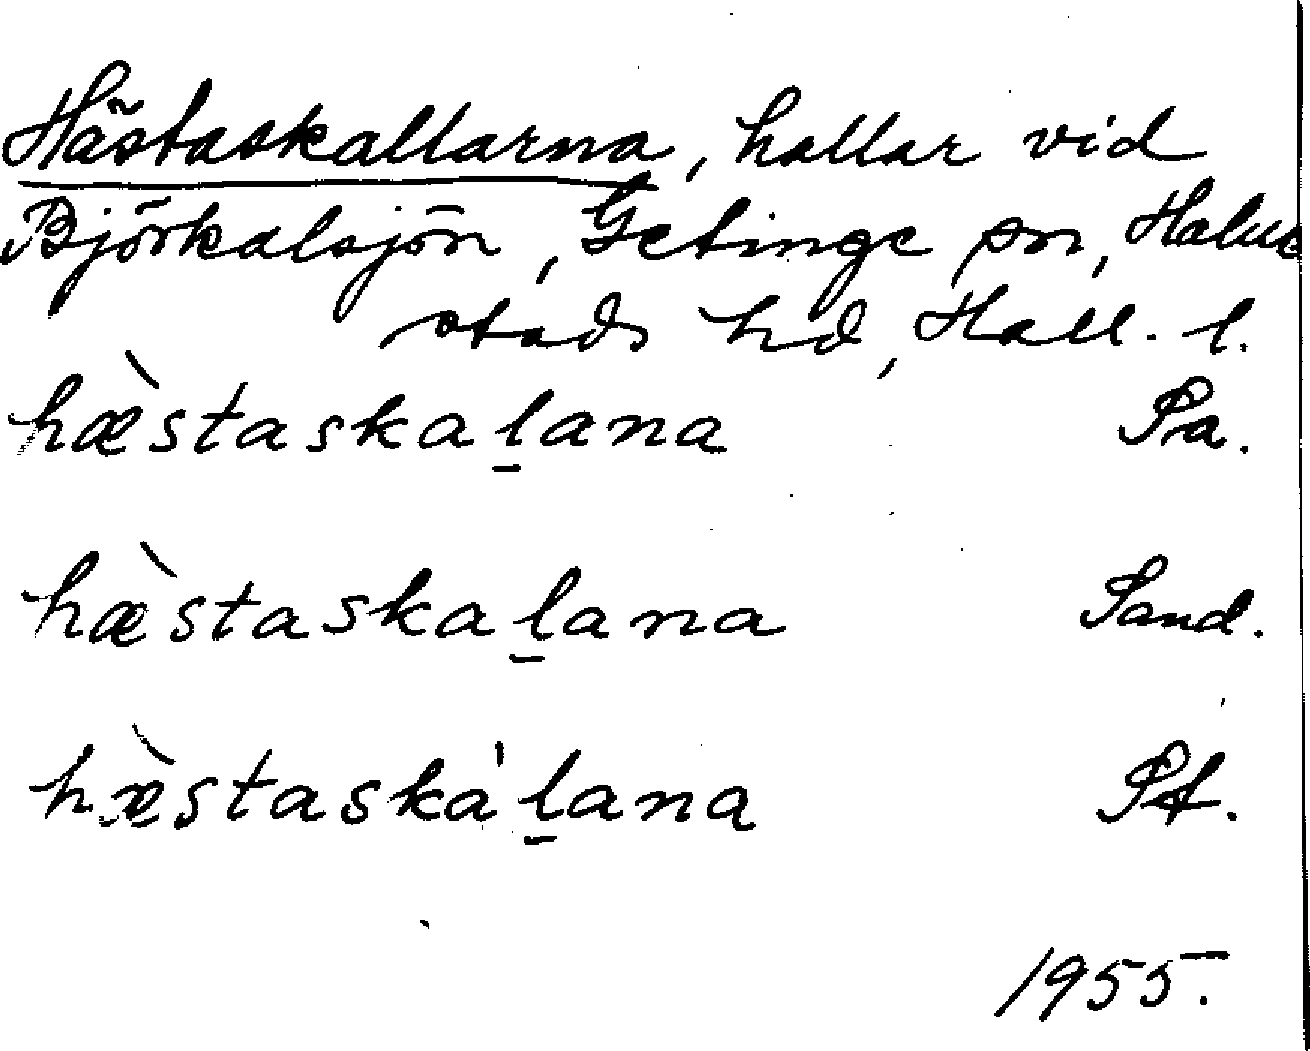 Hästaskallarna, hallar vid
Björkalsjön, Getinge sn, Halm
stads hd, Hall. l.
hæ̀staskal̠ana Pa.
hæ̀staskal̠ana Sand.
hæ̀staska̍l̠ana
1955.